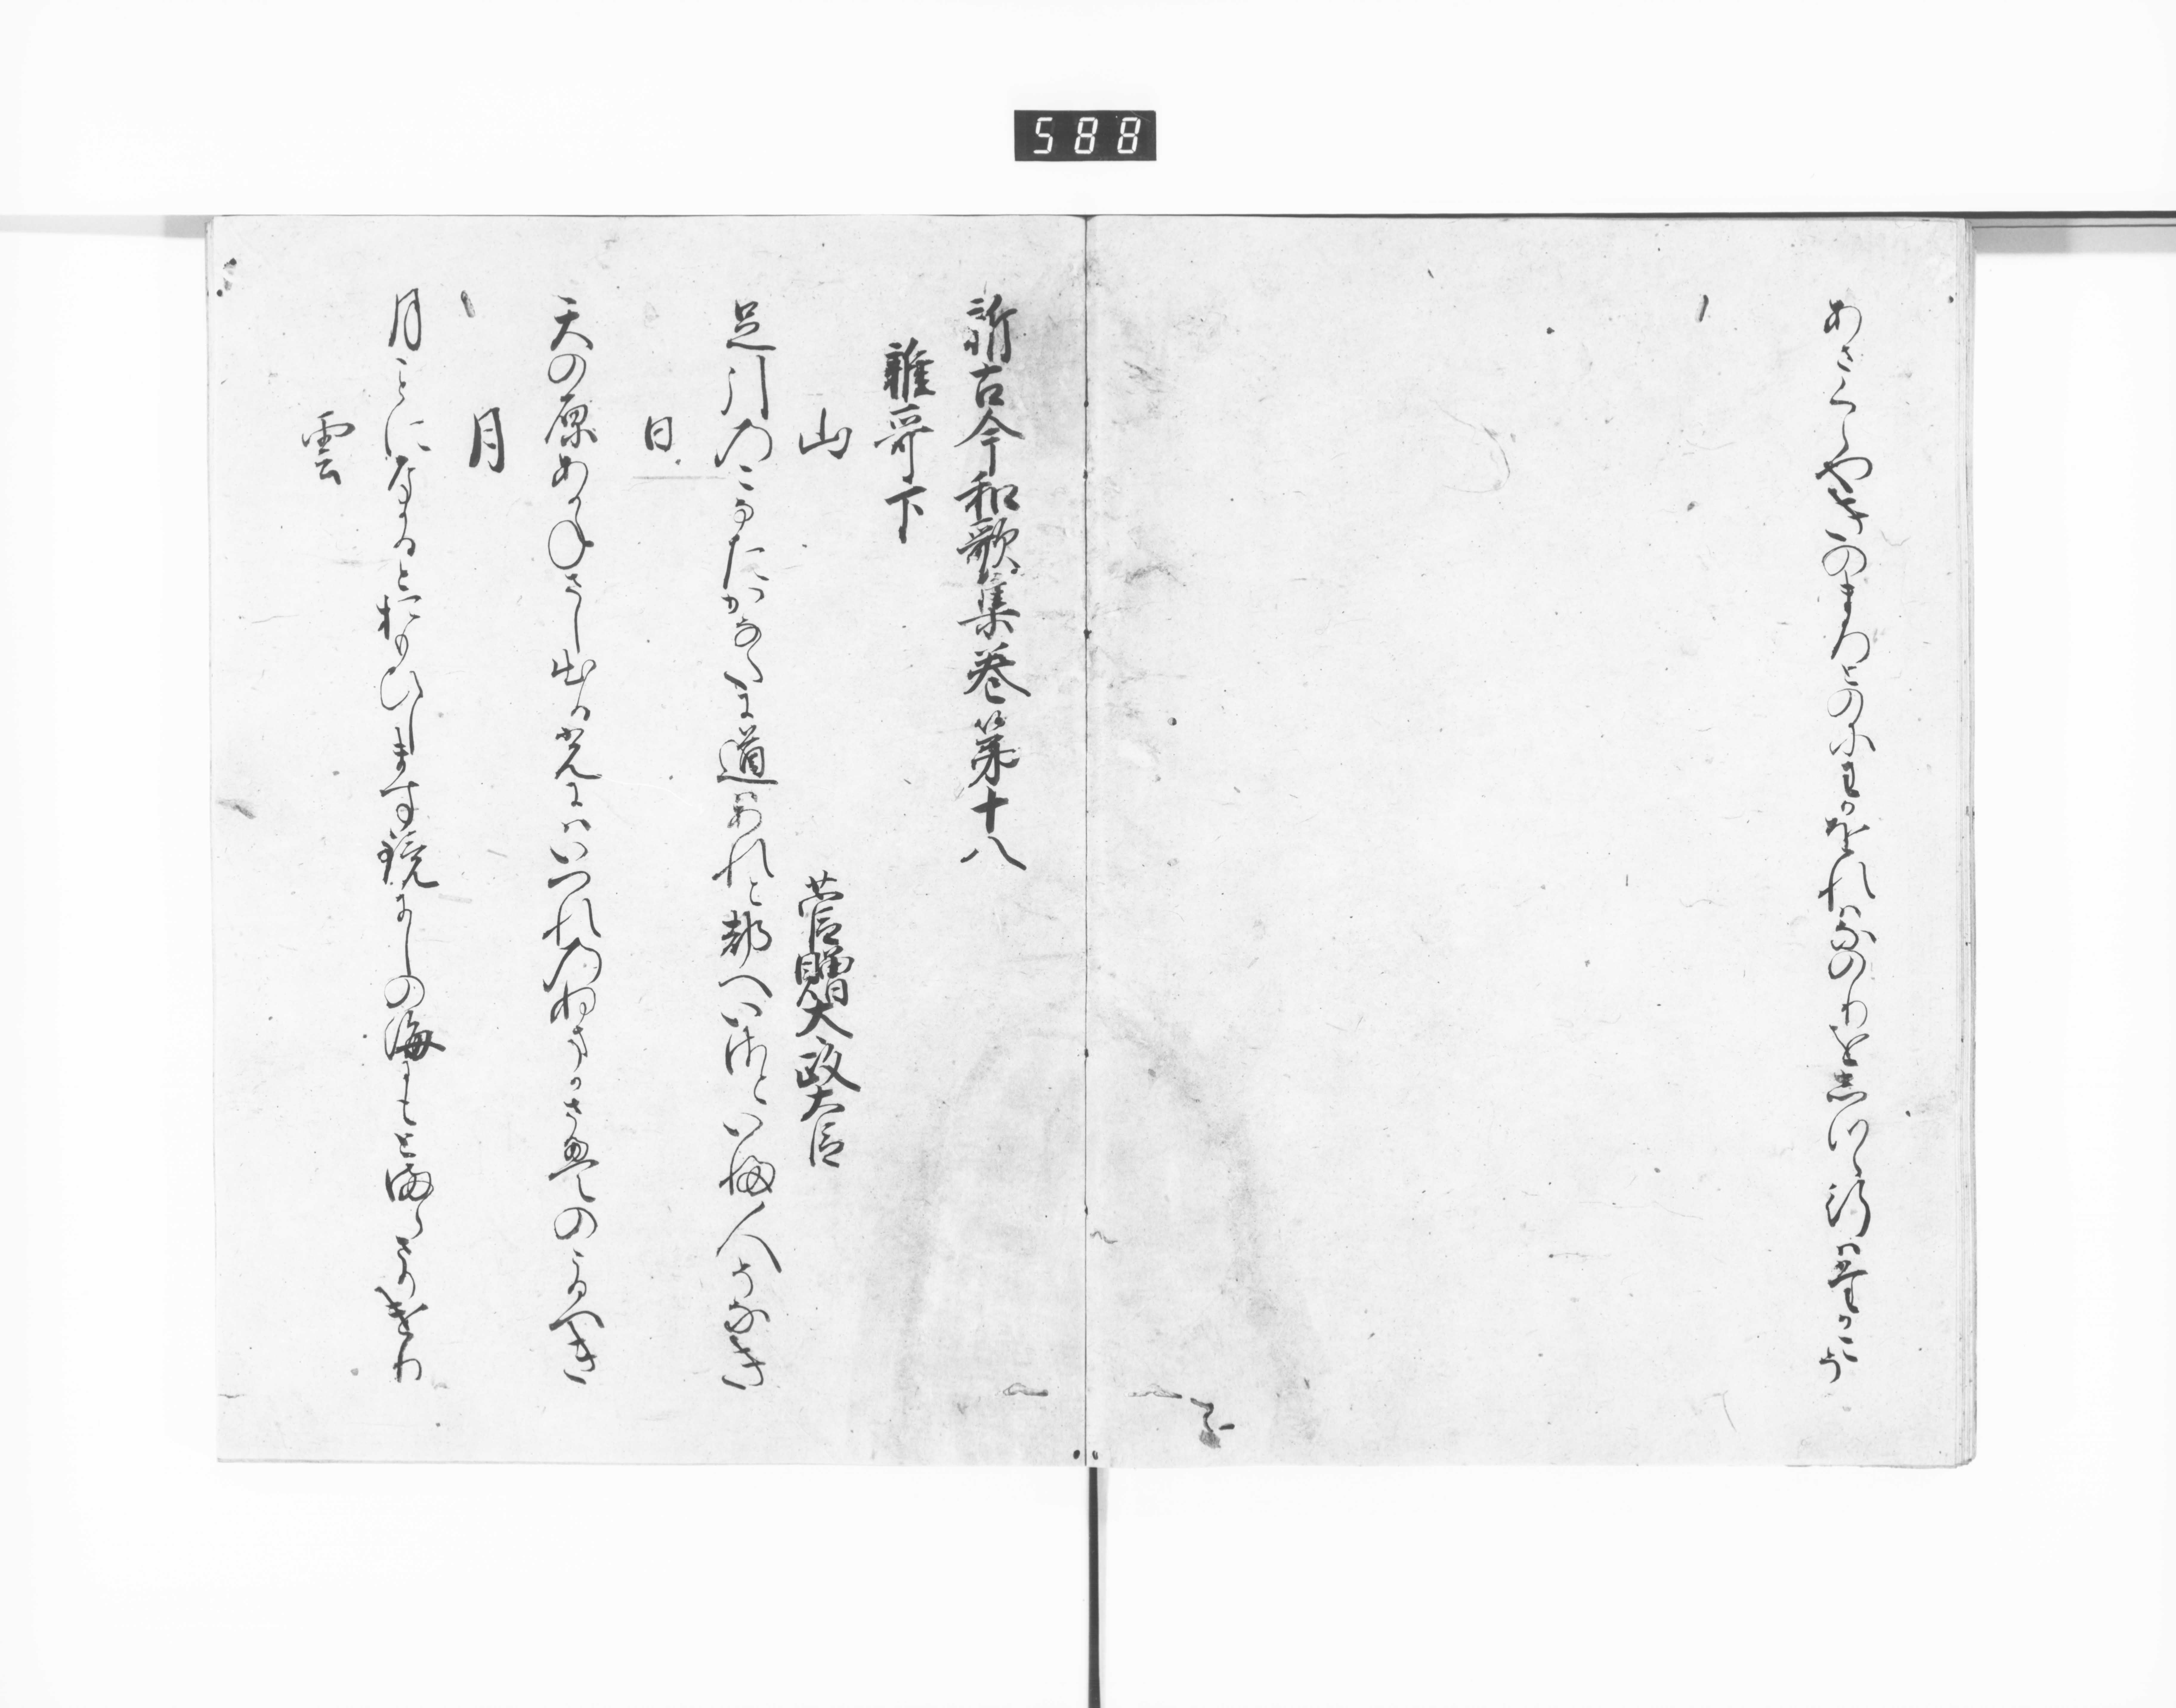 588
あさくらや木のまろとのにわかをれはなのりをしつゝ行はたかこそ
新古今和歌集巻第十八
雑哥下
山
菅贈大政大臣
足引のこなたかなたに道はあれと都へいさといふ人そなき
日
天の原あかねさし出る光にはいつれのぬまかさえのこるへき
月
月ことになかるとおもひします鏡にしの海にもとまらさりけり
雲